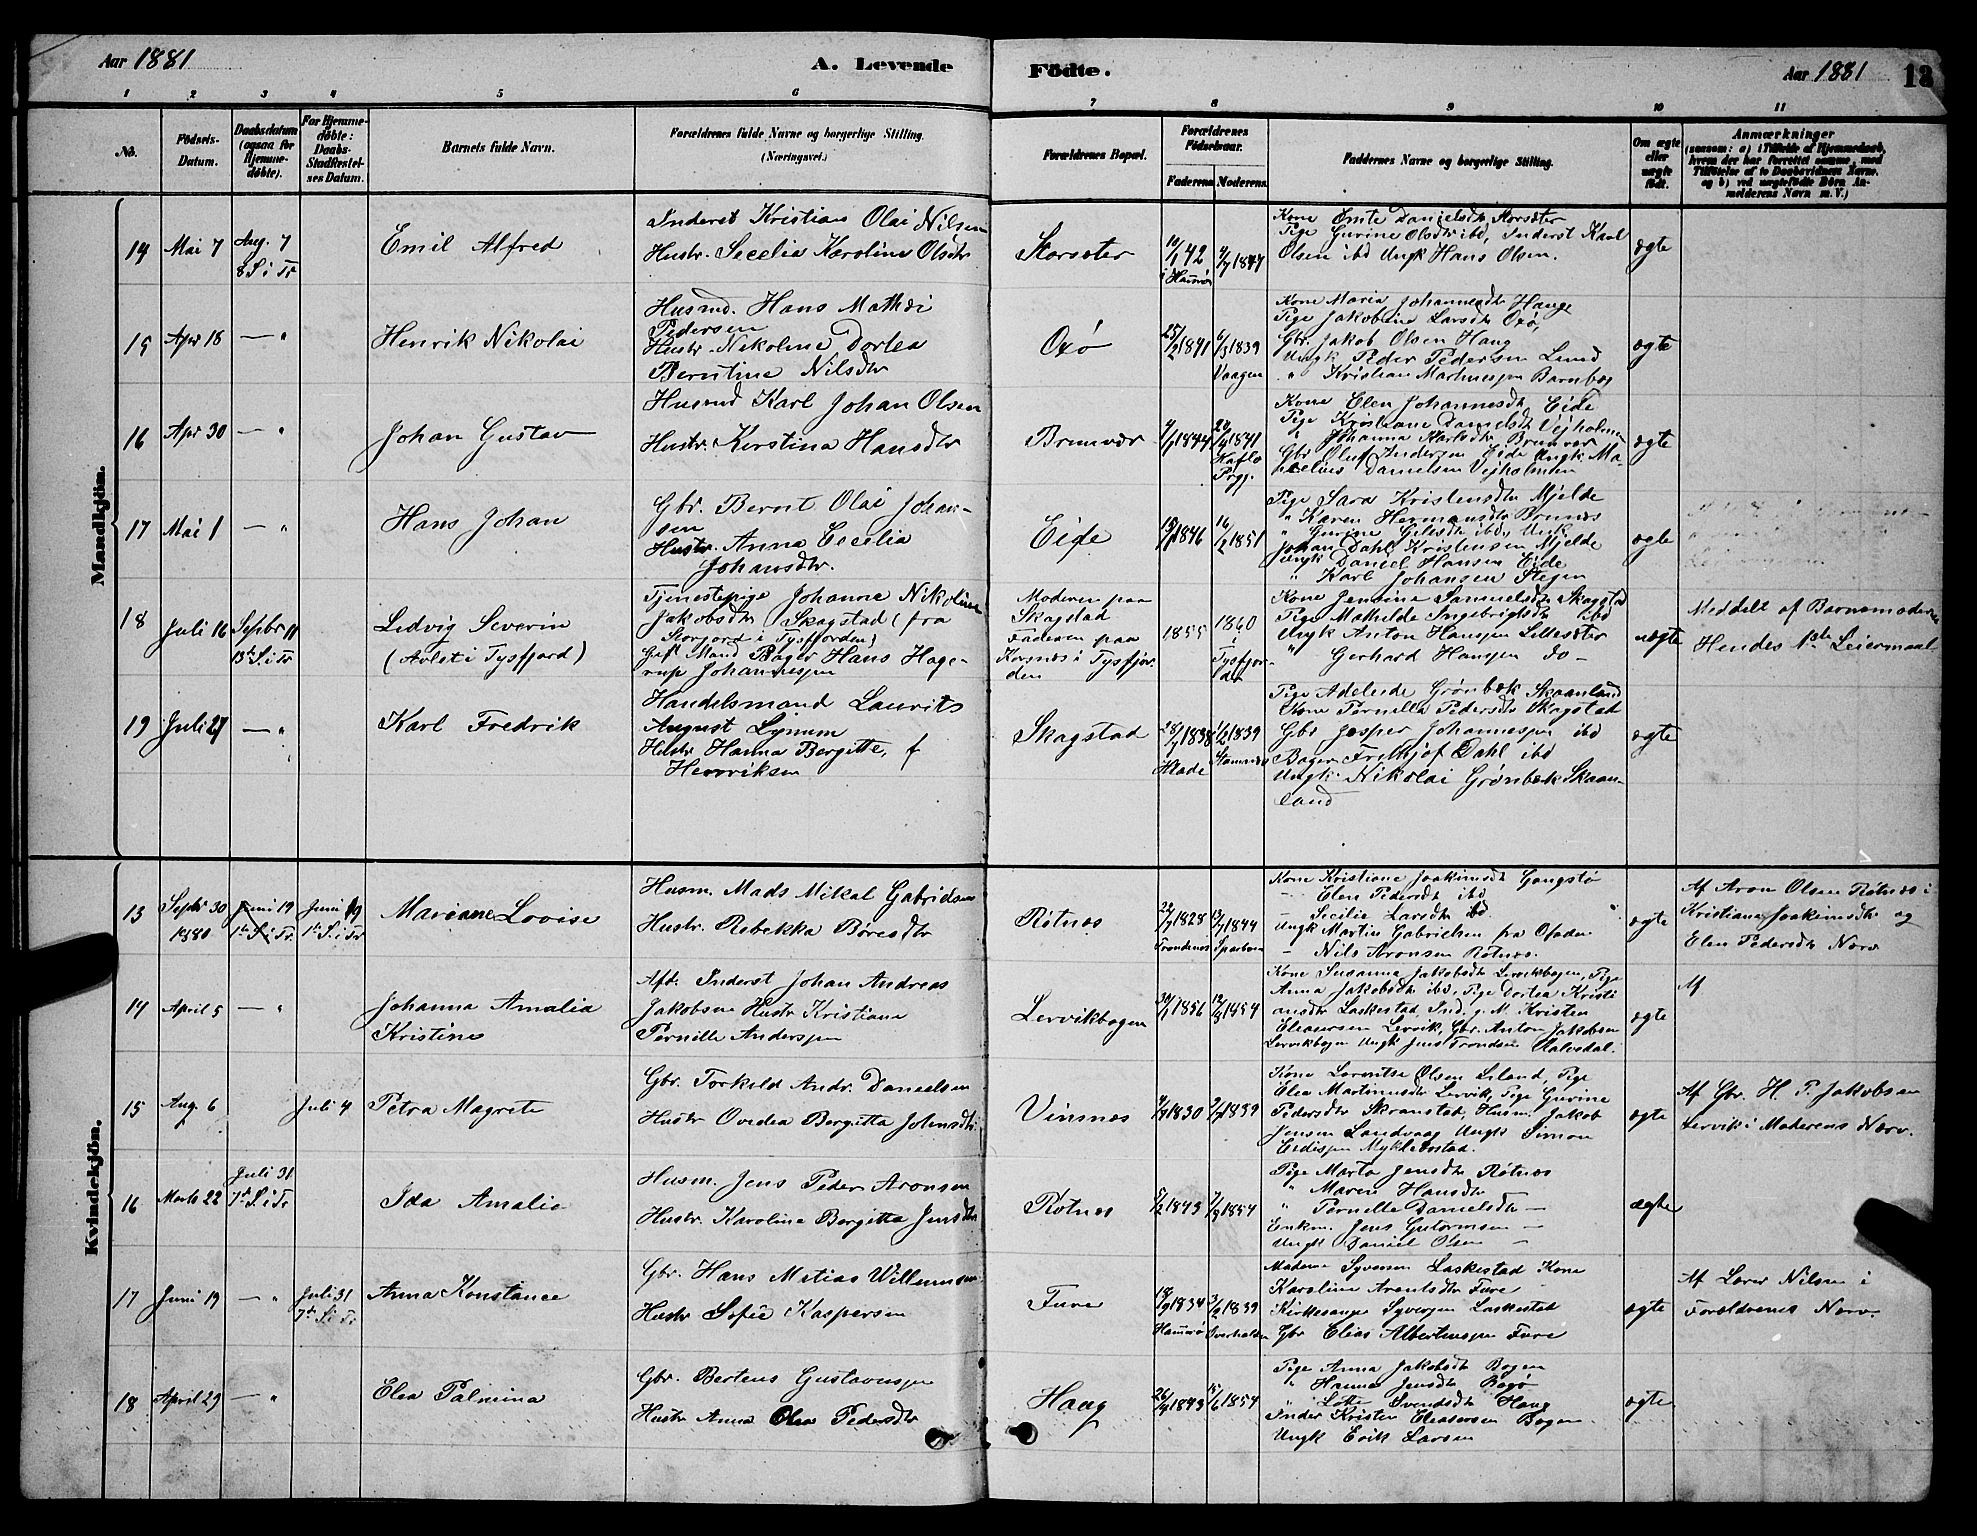 Aar 1881
A. Levende Födte.
Aar 1881
13
1 2 3 4 5 6 7 8 9 10 11
No.
Födsels-Datum.
Daabsdatum (ogsaa for Hjemme-döbte).
For Hjemme-döbte: Daabs-Stadfæstel-ses Datum.
Barnets fulde Navn.
Forældrenes fulde Navne og borgerlige Stilling.
(Næringsvei.)
Forældrenes Bopæl.
Forældrenes Födselsaar.
Faderens Moderens
Faddernes Navne og borgerlige Stilling.
Om ægte eller uægte födt.
Anmærkninger
(saasom: a) i Tilfælde af Hjemmedaab,
hvem der har forrettet samme, med
Tilföielse af to Daabsvidners Navne.
og b) ved uægtefödte Börn An-
melderens Navn m. V.)
Mandkjön.
14 Mai 7 Aug. 7
8 S i Tr
Emil Alfred
Inderst Kristian Olai Nilsen
Hustr. Secelia Karolina Olsdtr
Korsæter
10/1 42 4/7 1847
Kone Emte Danielsdtr Korsæter
Pige Gurine Olsdtr ibd, Inderst Karl
Olsen ibd Ungk Hans Olsen.
ægte
15 Apr 18 — "
Henrik Nikolai
Husmd. Hans Mathæi
Pedersen
Hustr. Nikoline Dortea
Berntine Nilsdtr
Oxø
25/2 1841 6/3 1839
Vaagen
Kone Maria Johannesdtr Hauge
Pige Jakobine Larsdtr Oxø,
Gbr. Jakob Olsen Haug
Ungk Peder Pedersen Lund
" Kristian Martinessen Barnbog
ægte
16 Apr 30 — "
Johan Gustav
Husmd Karl Johan Olsen
Hustr. Kerstina Hansdtr
Brunvær
1844 1841
Kone Elen Johannesdtr Eide
Pige Kristiane Danielsdt Vejholmen
" Johanna Karlsdtr Brunvær
Gbr Oluf Andersen Eide Ungk Ma-
Danielsen Vejholmen
ægte
17 Mai 1 — "
Hans Johan
Gbr. Bernt Olai Johan-
sen
Hustr. Anna Cecelia
Johansdtr.
Eide
1846 16/2 1851
Pige Sara Kristensdtr Mjelde
" Karen Hermansdtr Brunæs
" Gurine Gilesdtr ibd, Ungk
Johan Dahl Kristensen Mjelde
Ungk Daniel Hansen Eide
" Karl Johansen Stegen
ægte
18 Juli 16 Septbr 11
13de S. i Tr
Ledvig Severin
(Avlet i Tysfjord)
Tjenestepige Johanne Nikoline
Jakobsdtr Skagstad (fra
Storjord i Tysfjorden)
Gift Mand Bager Hans Hage-
rup Johannessen
Moderen paa
Skagstad
Faderen paa
Korsnæs i Tysfjor-
den
1855 1860
i
Tysfjor-
den
Kone Jensine Samuelsdtr Skagstad
Pige Mathilde Ingebrigtsdtr ibd
Ungk Anton Hansen Lillesæter
" Gerhard Hansen do —
uægte
Meddelt af Barnemoderen
Hendes 1ste Leiermaal
19 Juli 27 — "
Karl Fredrik
Handelsmand Laurits
August Lynum
Hustr Hanna Bergitte, f
Henriksen
Skagstad
28/7 1838 1/2 1839
Hlade Stamnæs
Pige Adelude Grønbæk Skaanland
Kone Pernella Pedersdtr Skagstad
Gbr Jesper Johannessen ibd
Bager Fritkjof Dahl ibd
Ungk Nikolai Grønbæk Skaan-
land
ægte
Kvindekjön.
13 Septbr 30
1880
Juni 19
1ste S. i Tr.
Juni 19
1ste S. i Tr
Mariane Lovise
Husm. Mads Mikal Gabrielsen
Hustr. Rebekka Børesdtr
Røtnæs
1828 1844
Trondenæs Sparboen
Kone Kristiane Joakimsdtr Gangstø
— Elen Pedersdtr ibd
— Secilie Larsdtr ibd.
Ungk Martin Gabrielsen fra Ofoden
— Nils Aronsen Røtnæs.
ægte
Af Aron Olsen Røtnæs i
Kristiane Joakimsdtr og
Elen Pedersdtr Nærv
14 April 5 — "
Johanna Amalia
Kristine
Afd. Inderst Johan Andreas
Jakobsen Hustr Kristiana
Pernille Anderssen
Lervikbogen
1856 1854
Kone Susanna Jakobsdtr Lervikbogen, Pige
Anna Jakobsdtr ibd, Pige Dortea Kristi
ansdtr Laskestad, Ind. g. M. Kristen
Eleasersen Lervik, Gbr. Anton Jakobsen
Lervikbogen Ungk Jens Trondsen Aalvedal.
ægte
Af
15 Aug. 6 Juli 4
Petra Magrete
Gbr. Torkild Andr. Danielsen
Hustr Ovedea Bergitta Johnsdtr
Vinsnæs
1830 1839
Kone Lorentse Olsen Leland, Pige
Elea Martinusdtr Lervik, Pige Gurine
Pedersdtr Skranstad, Husm. Jakob
Jensen Landvaag Ungk Simon
Eedissen Myklebostad.
ægte
Af Gbr. H. P. Jakobsen
Lervik i Moderens Nærv.
16 Marts 22 Juli 31
7de S. i Tr
Ida Amalia
Husm. Jens Peder Aronsen
Hustr. Karolina Bergitta Jensdtr
Røtnæs
1843 1854
Pige Marta Jensdtr Røtnæs
" Maren Hansdtr —
" Pernille Danielsdtr —
Enkm. Jens Gutormsen —
Ungk Daniel Olsen —
ægte
17 Juni 19 — " Juli 31
7de S. i Tr
Anna Konstance
Gbr. Hans Matias Willumsen
Hustr Sofie Kaspersen
Fure
18/9 1834 1839
Hammerø Overhalden
Madame Syversen Laskestad Kone
Karoline Arentsdtr Fure
Kirkesanger Syversen Laskestad
Gbr Elias Albertussen Fure
ægte
Af Lærer Nilsen i
Forældrenes Nærv.
18 April 29 — "
Elea Palmina
Gbr. Berteus Gustavussen
Hustr Anna Olea Pedersdtr
Haug
26/4 1843 15/6 1854
Pige Anna Jakobsdtr Bogen
" Hanna Jensdtr Bogø
" Lota Svendsdtr Haug
Inder Kristen Eleasersen Bogen
Ungk Erik Larsen
ægte